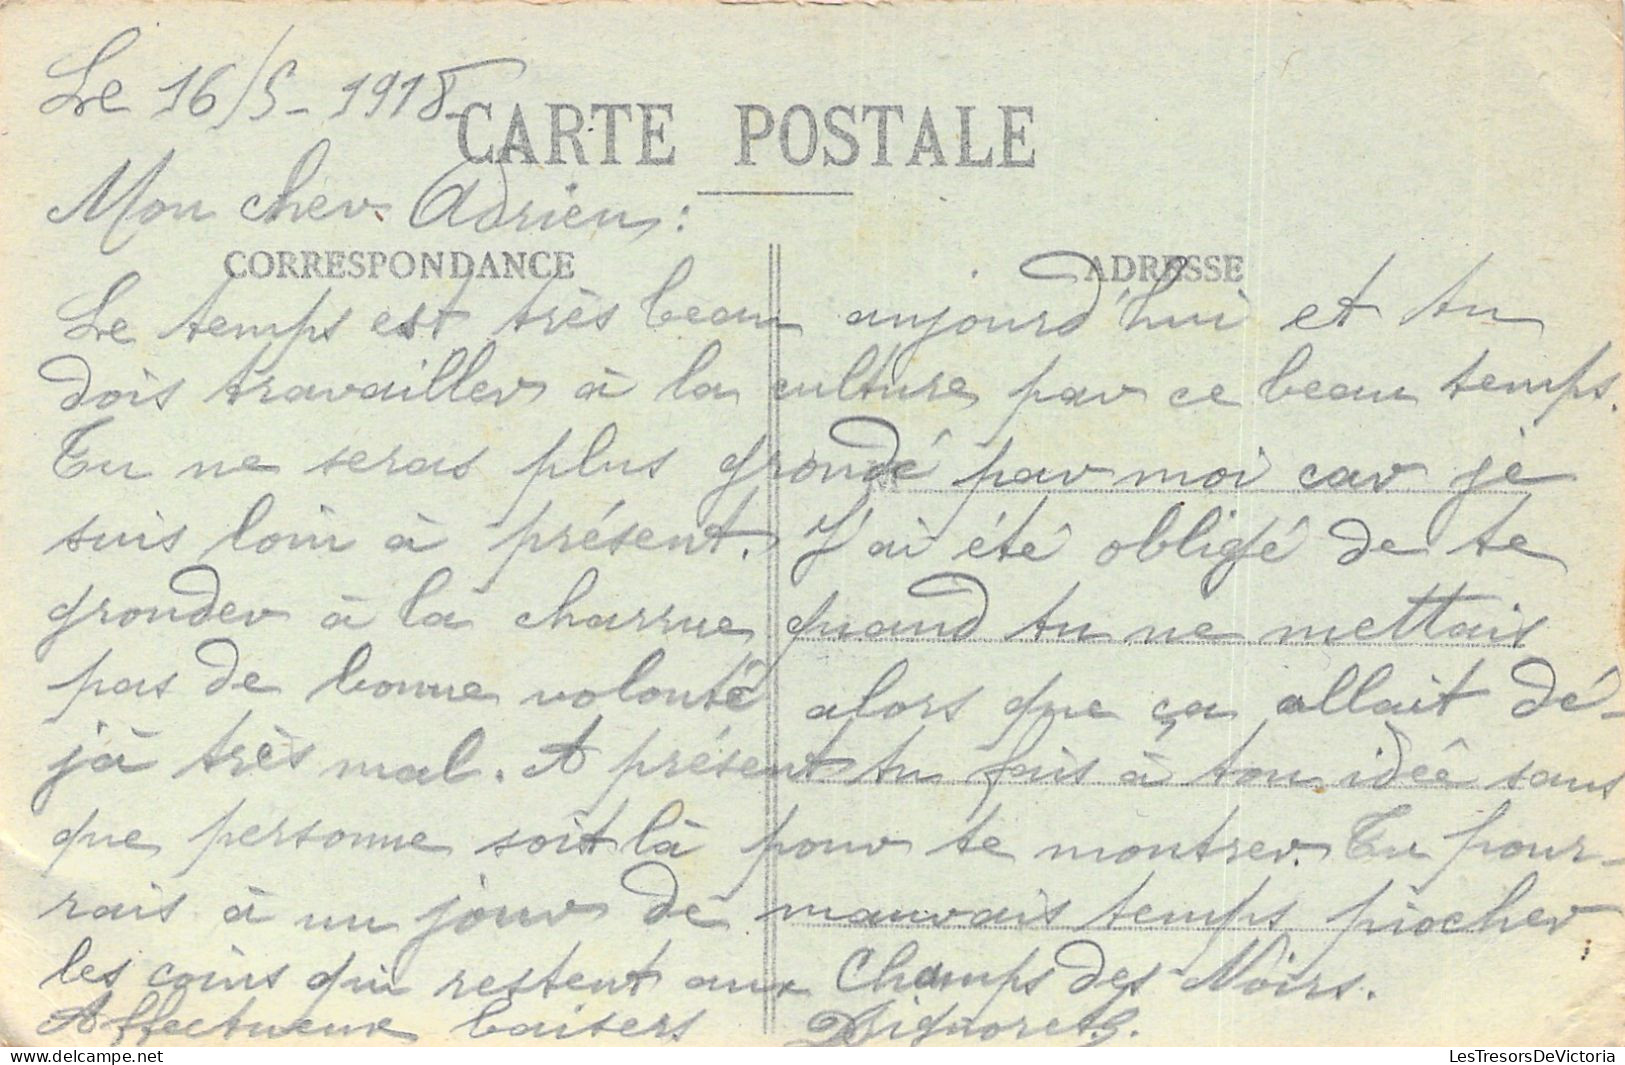 Le 16/5-1918-
CARTE POSTALE
Mon cher Adrien:
CORRESPONDANCE
ADRESSE
Le temps est très beau aujourd'hui et tu
dois travailler à la culture par ce beau temps.
Tu ne seras plus grondé par moi car je
suis loin à présent. J'ai été obligé de te
gronder à la charrue quand tu ne mettais
pas de bonne volonté alors que ça allait dé-
jà très mal. A présent tu fais à ton idée sans
que personne soit là pour te montrer. Tu pour-
rais à un jour de mauvais temps piocher
les coins qui restent aux Champs des Noirs.
Affectueux baisers
LesTresorsDeVictoria